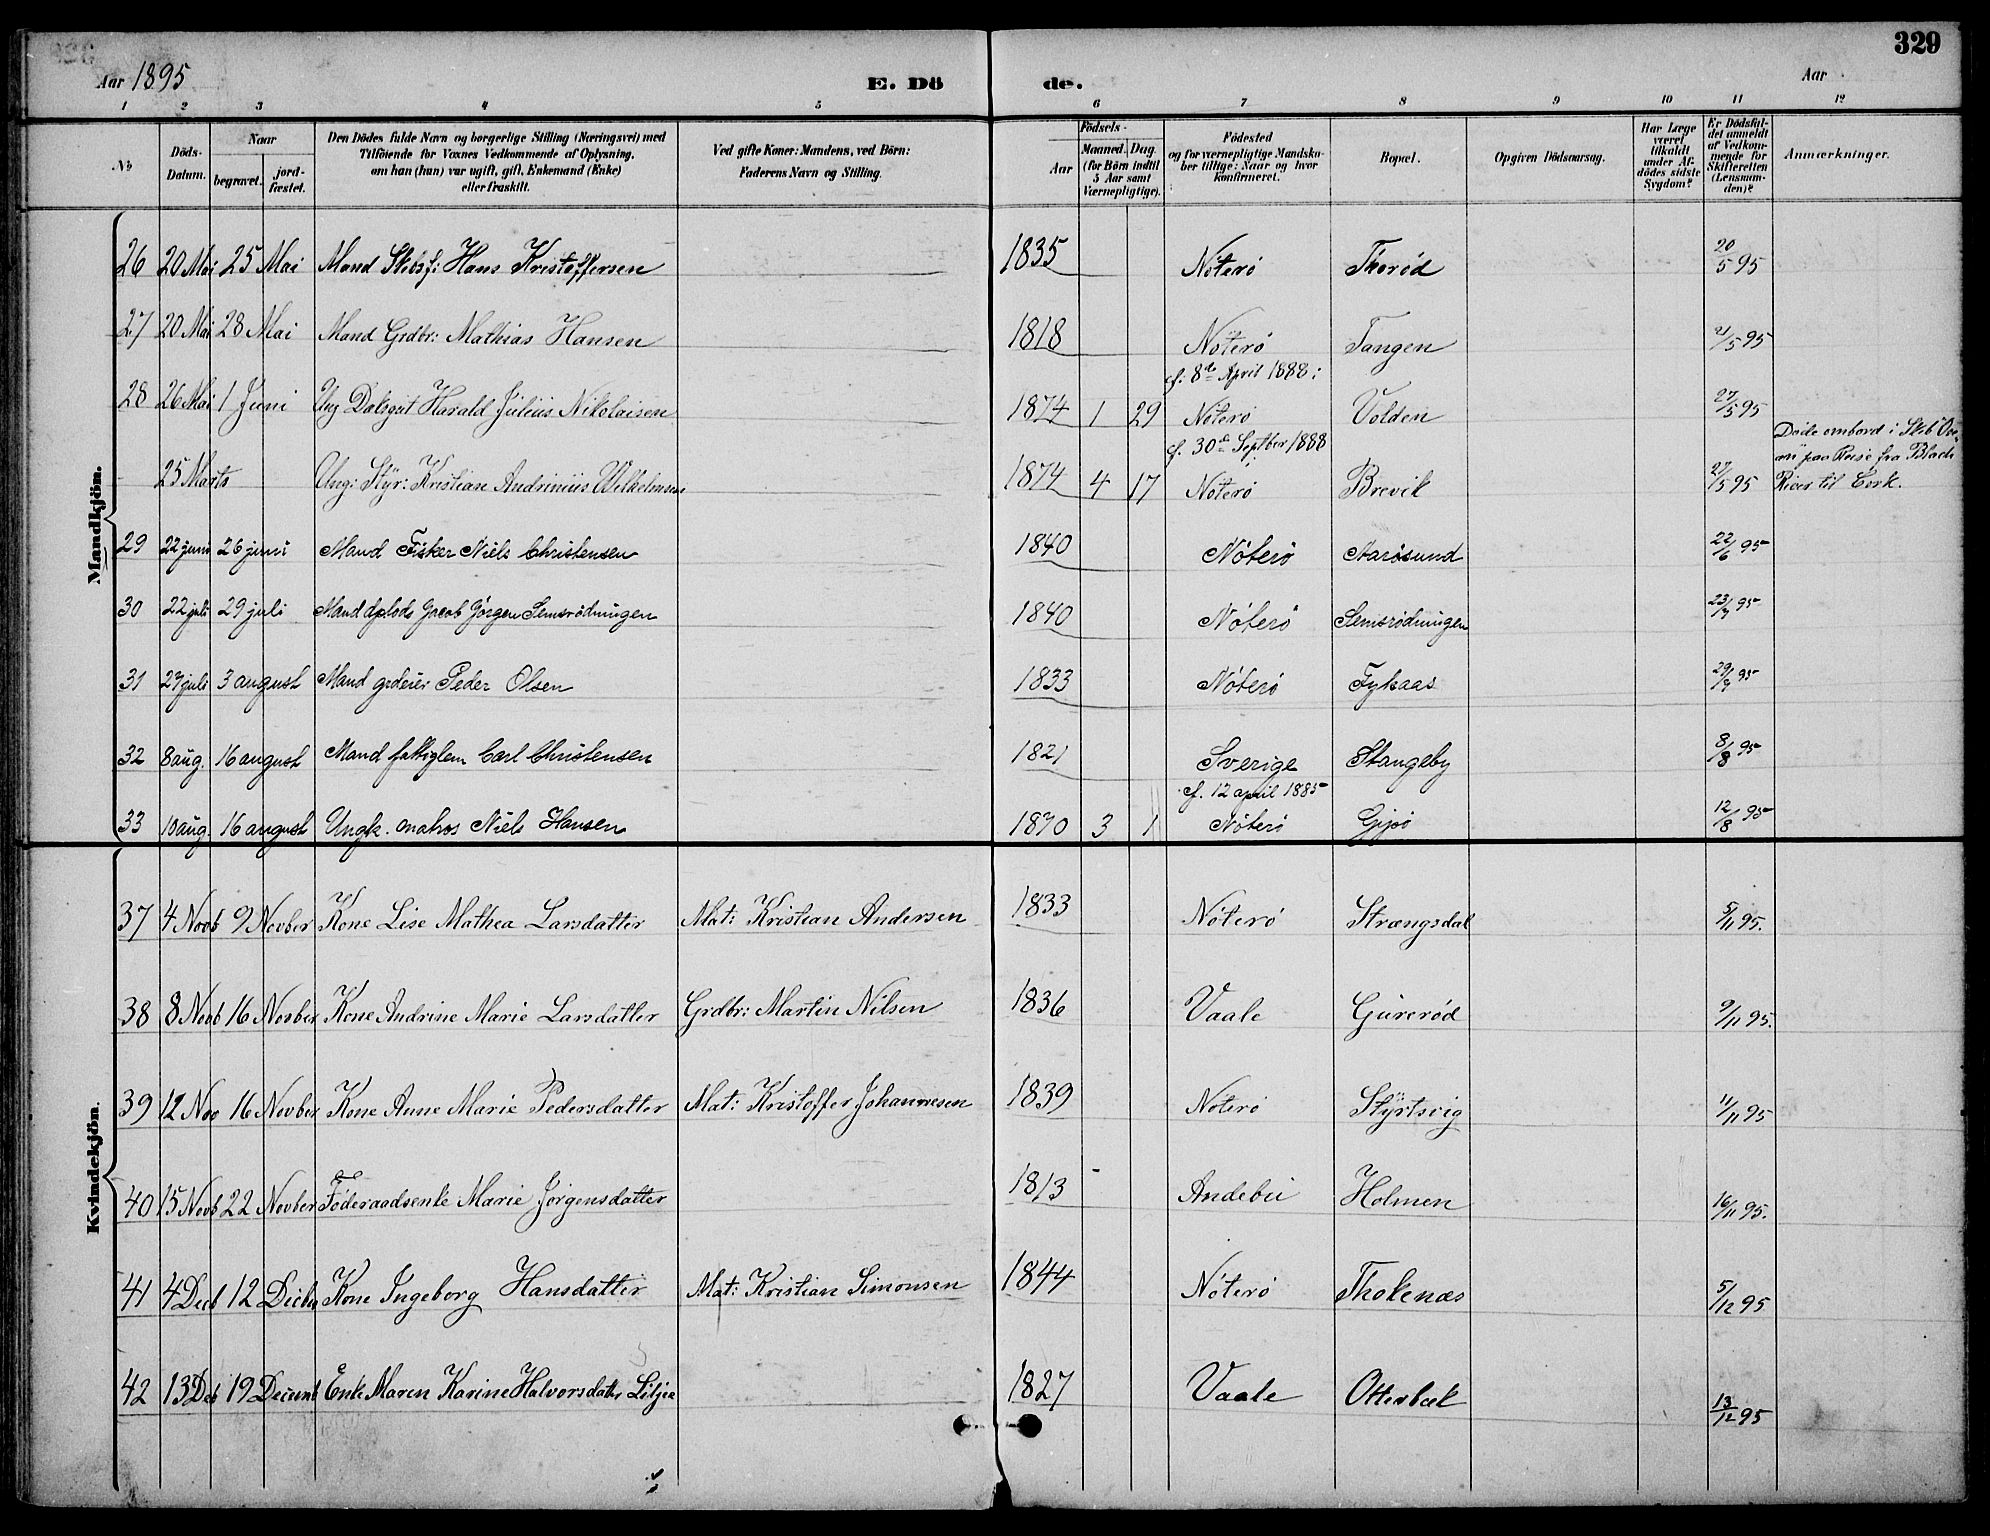 329
Aar 1895
E. Dö de.
Aar
1 2 3 4 5 6 7 8 9 10 11 12
No
Döds-
Datum.
Naar
begravet.
jord-
fæstet.
Den Dödes fulde Navn og borgerlige Stilling (Næringsvei) med
Tilföiende for Voxnes Vedkommende af Oplysning,
om han (hun) var ugift, gift, Enkemand (Enke)
eller fraskilt.
Ved gifte Koner: Mandens, ved Börn:
Faderens Navn og Stilling.
Födsels-
Aar
Maaned.
Dag.
(for Börn indtil
5 Aar samt
Værnepligtige).
Födested
og for værnepligtige Mandska-
ber tillige: Naar og hvor
konfirmeret.
Bopæl.
Opgiven Dödsaarsag.
Har Læge
været
tilkaldt
under Af-
dödes sidste
Sygdom?
Er Dödsfal-
det anmeldt
af Vedkom-
mende for
Skifteretten
(Lensman-
den)?
Anmærkninger.
Mandkjön.
26 20 Mai 25 Mai Mand Skibsf: Hans Kristoffersen 1835 Nøterø Thorød 20/5 95
27 20 Mai 28 Mai Mand Grdbr: Mathias Hansen 1818 Nøterø Tangen 21/5 95
cf: 8de April 1888:
28 26 Mai 1 Juni Ung Daksgut Harald Julius Nikolaisen 1874 1 29 Nøterø Volden 27/5 95
cf. 30de Septber 1888
25 Marts Ung: Styr: Kristian Andrinius Wilhelmsen 1874 4 17 Nøterø Brevik 27/5 95
Døde ombord i Skib
paa Reise fra Black
River til Cork.
29 22 juni 26 juni Mand Fisker Niels Christensen 1840 Nøterø Aarøsund 22/6 95
30 22 juli 29 juli Mand Jacob Jörgen Semsrödningen 1840 Nøterø Semsrødningen 23/7 95
31 27 juli 3 august Mand grdeier Peder Olsen 1833 Nøterø Fykaas 29/7 95
32 8 aug. 16 august Mand fattiglem Carl Christensen 1821 Sverige Stangeby 8/8 95
cf. 12 april 1885
33 10 aug. 16 august Ungk. matros Niels Hansen 1870 3 1 Nøterø Gipø 12/8 95
Kvindekjön.
37 4 Novb 9 Novber Kone Lise Mathea Larsdatter Mat: Kristian Andersen 1833 Nøterø Strængsdal 5/11 95.
38 8 Novb 16 Novber Kone Andrine Marie Larsdatter Grdbr: Martin Nilsen 1836 Vaale Gurerød 9/11 95.
39 12 Nov 16 Novber Kone Anne Marie Pedersdatter Mat: Kristoffer Johannesen 1839 Nøterø Styrtsvig 11/11 95
40 15 Novb 22 Novber Føderaadsenke Marie Jørgensdatter 1813 Andebu Holmen 16/11 95.
41 4 Decb 12 Decber Kone Ingeborg Hansdatter Mat: Kristian Simonsen 1844 Nøterø Thokenæs 5/12 95
42 13 Deb 19 Decemb Enke Maren Karine Halvorsdatter Liljee 1827 Vaale Otterbæk 13/12 95